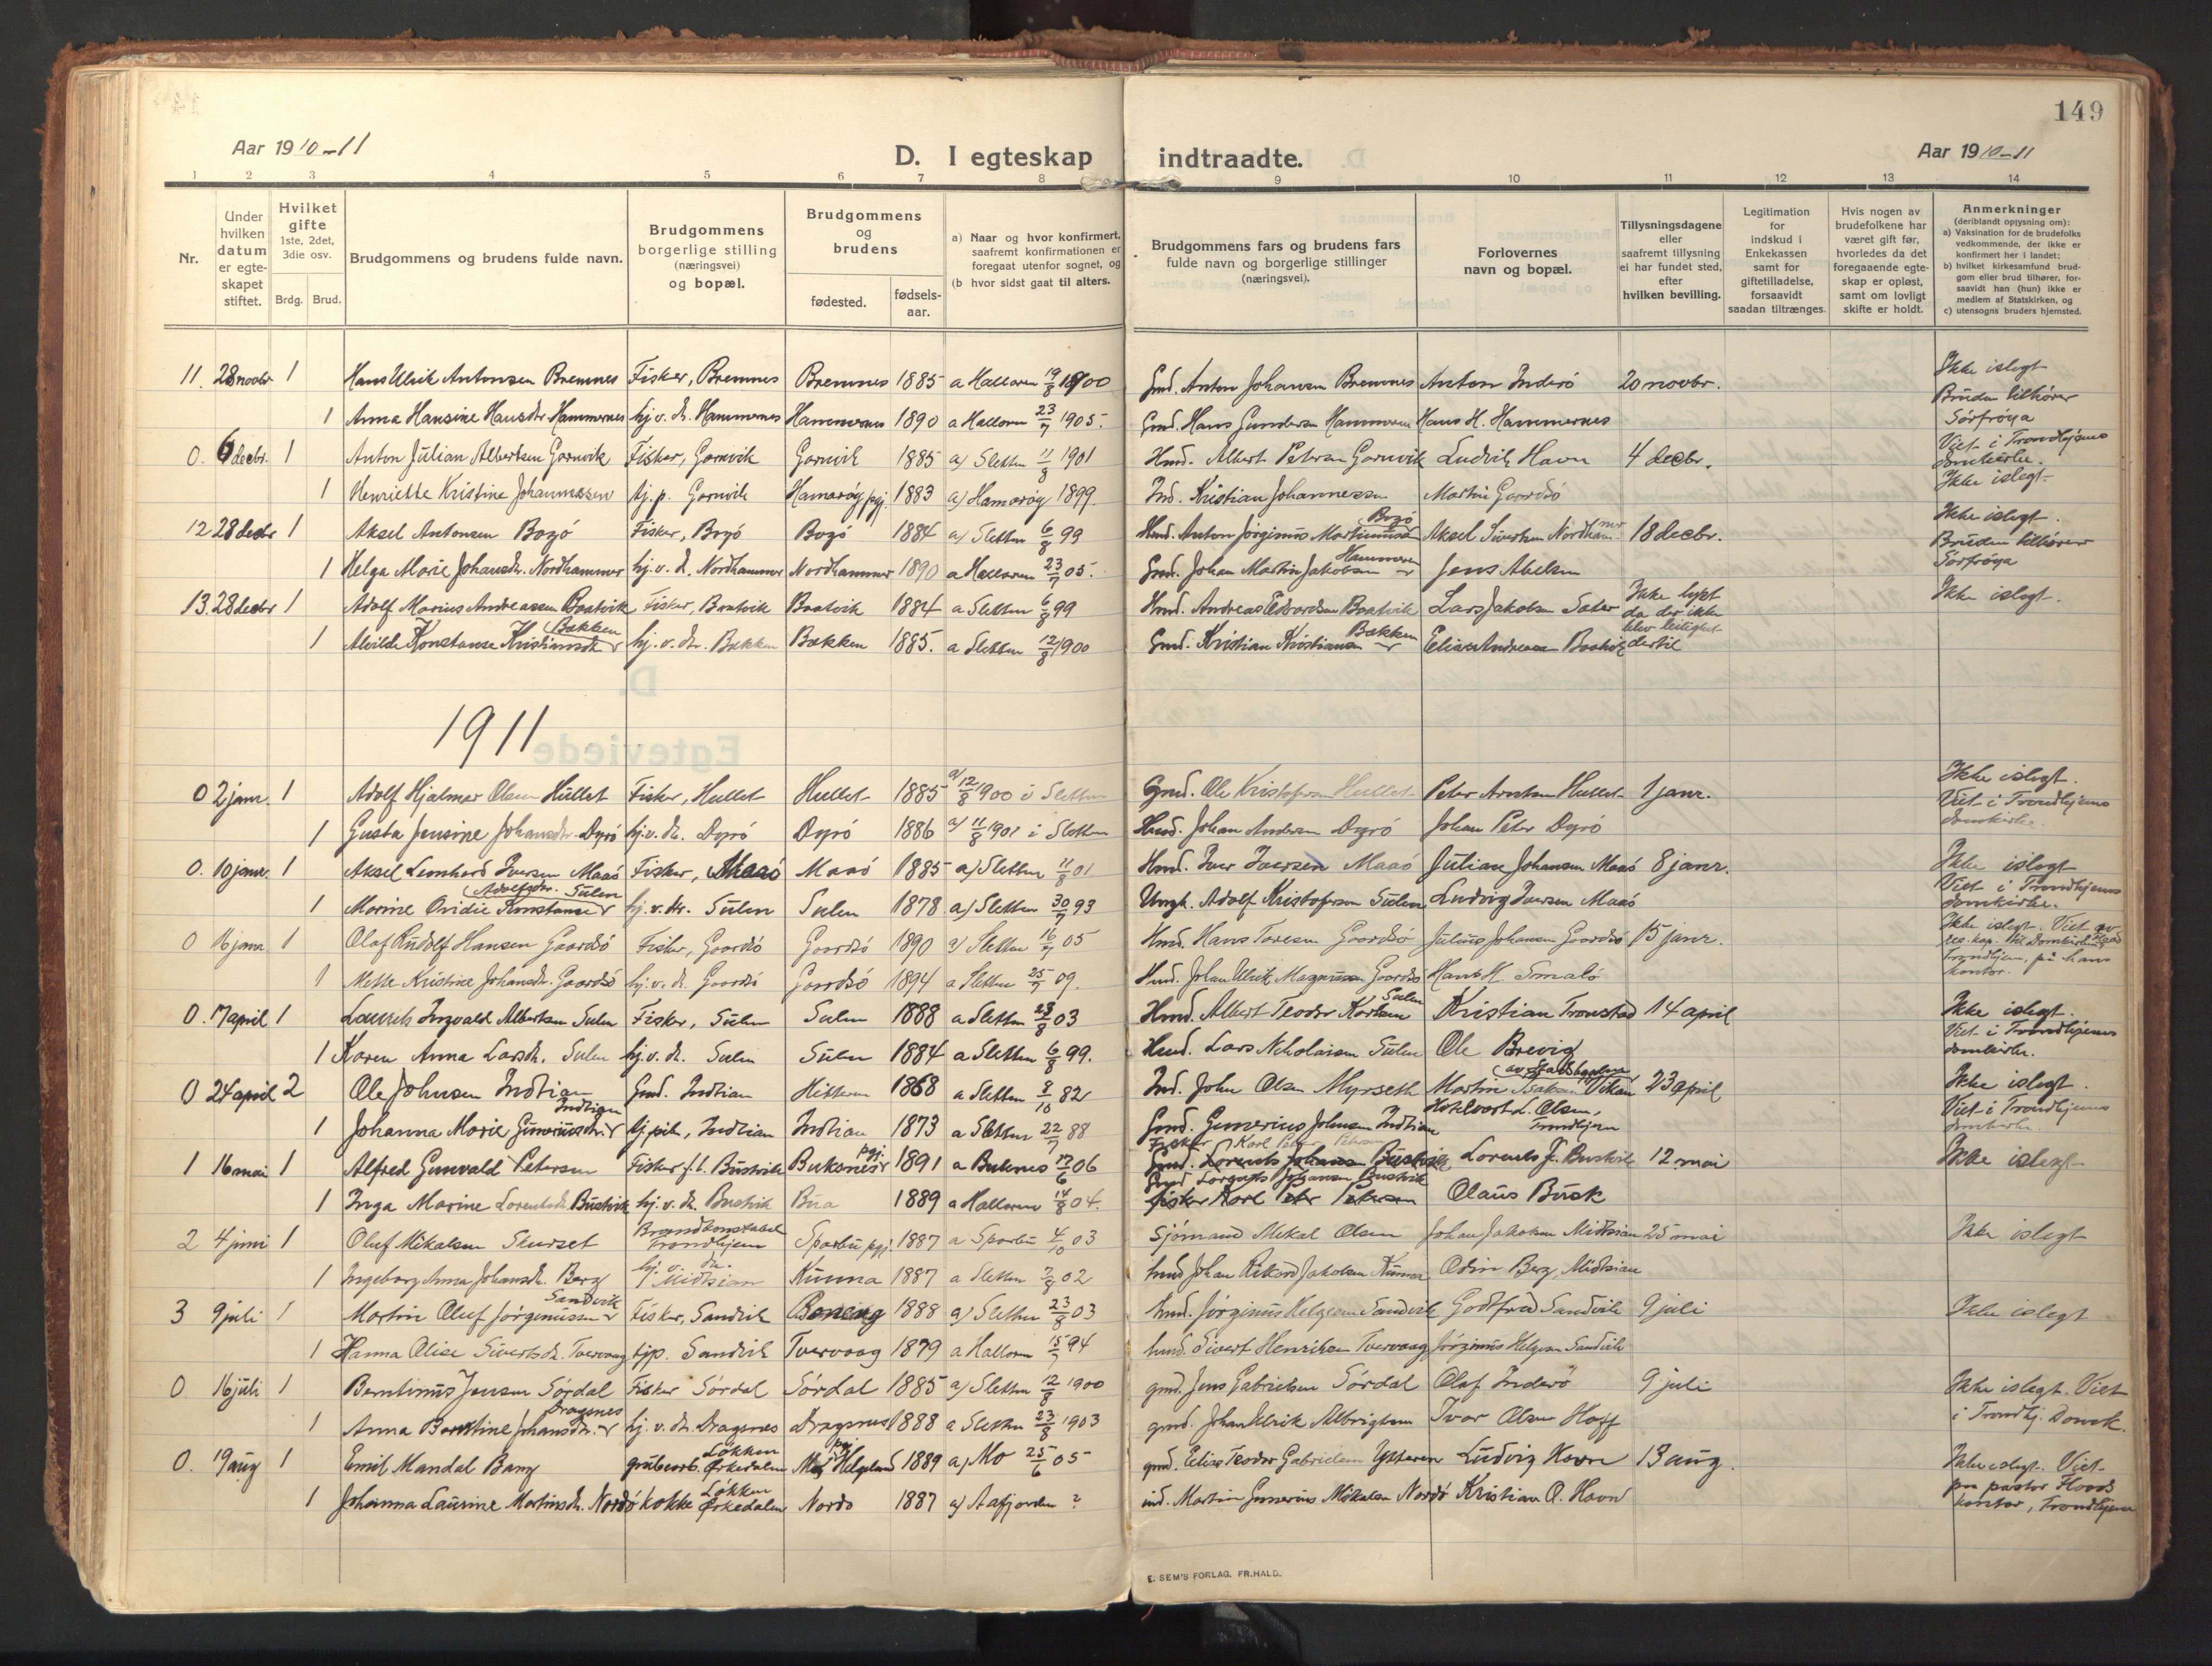 149
Aar 1910-11
D. I egteskap indtraadte.
Aar 1910-11
1 2 3 4 5 6 7 8 9 10 11 12 13 14
Nr.
Under hvilken datum er egteskapet stiftet.
Hvilket gifte 1ste, 2det, 3die osv.
Brdg. Brud.
Brudgommens og brudens fulde navn.
Brudgommens borgerlige stilling (næringsvei) og bopæl.
Brudgommens og brudens
fødested.
fødsels-aar.
a) Naar og hvor konfirmert, saafremt konfirmationen er foregaat utenfor sognet, og
(b hvor sidst gaat til alters.
Brudgommens fars og brudens fars fulde navn og borgerlige stillinger (næringsvei).
Forlovernes navn og bopæl.
Tillysningsdagene eller saafremt tillysning ei har fundet sted, efter hvilken bevilling.
Legitimation for indskud i Enkekassen samt for giftetilladelse, forsaavidt saadan tiltrænges.
Hvis nogen av brudefolkene har været gift før, hvorledes da det foregaaende egteskap er opløst, samt om lovligt skifte er holdt.
Anmerkninger (deriblandt optysning om):
a) Vaksination for de brudefolks vedkommende, der ikke er konfirmert her i landet;
b) hvilket kirkesamfund brudgom eller brud tilhører, forsaavidt han (hun) ikke er medlem af Statskirken, og
c) utensogns bruders hjemsted.
11. 28 novbr 1 Hans Ulrik Antonsen Bremnes Fisker, Bremnes Bremnes 1885 a Halloren 19/8 1900 Gmd. Anton Johansen Bremnes Anton Inderö 20 novbr. Ikke islegt
1 Anna Hansine Hansdtr. Hammernes hj. v. dr. Hammernes Hammernes 1890 a Halloren 23/7 1905. Gmd. Hans Gundersen Hammernes Hans H. Hammernes Bruden tilhører Sörfröya
0. 6 decbr. 1 Anton Julian Albertsen Gornvik Fisker, Gornvik Gornvik 1885 a) Sletten 11/8 1901 Hmd. Albert Petersen Gornvik Ludvik Havn 4 decbr. Viet i Trondhjems domkirke.
1 Henriette Kristine Johannessen tj. p. Gornvik Hamarøy pgj. 1883 a) Hamarøy 1899. Ind. Kristian Johannessen Martin Gaardsö Ikke islegt
12 28 decbr 1 Aksel Antonsen Bogö Fisker, Bogö Bogö 1884 a) Sletten 6/8 99 Hmd. Anton Jörginus Martinussen Bogö Aksel Sivertsen Nordhammer 18 decbr. Ikke islegt.
1 Helga Marie Johansdtr. Nordhammer hj. v. d. Nordhammer Nordhammer 1890 a Halloren 23/7 05. Gmd. Johan Martin Jakobsen Hammeren Jens Abelsen Bruden tilhører Sörfröya
13. 28 decbr 1 Adolf Marius Andreassen Baatvik Fisker, Baatvik Baatvik 1884 a Sletten 6/8 99 Hmd. Andreas Edvardsen Baatvik Lars Jakobsen Sæter Ikke lyst da der ikke blev leilighet dertil Ikke islegt.
1 Alvilde Konstanse Kristiansdtr Bakken hj. v. dr. Bakken Bakken 1885. a Sletten 12/8 1900 Gmd. Kristian Kristiansen Bakken Elias Andreassen Baatvik
1911
0 2 janr. 1 Adolf Hjalmar Olsen Hullet Fisker, Hullet Hullet 1885 a/ 12/8 1900 i Sletten Gmd. Ole Kristofersen Hullet Peter Arntsen Hullet 1 janr. Ikke islegt.
1 Gusta Jensine Johansdtr. Dyrö hj. v. dr. Dyrö Dyrö 1886 a/ 11/8 1901 i Sletten Hmd. Johan Andersen Dyrö Johan Peter Dyrö Viet i Trondhjems domkirke.
0. 10 janr. 1 Aksel Leonhard Iversen Maaö Fisker, Maaö Maaö 1885 a) Sletten 11/8 01 Hmd. Iver Iversen Maaö Julian Johansen Maaö 8 janr. Ikke islegt
1 Marine Ovidie Konstanse Adolfsdtr. Sulen hj. v. dr. Sulen Sulen 1878 a) Sletten 30/7 93 Ungk. Adolf Kristofersen Sulen Ludvig Iversen Maaö Viet i Trondhjems domkirke.
0 16 janr 1 Olaf Rudolf Hansen Gaardsö Fisker, Gaardsö Gaardsö 1890 a) Sletten 16/7 05 Hmd. Hans Toresen Gaardsö Julius Johansen Gaardsö 15 janr. Ikke islegt. Viet av res. kap. til Domkirken Trondhjem, på hans kontor.
1 Mette Kristine Johansdtr. Gaardsö hj. v. d. Gaardsö Gaardsö 1894 a Sletten 25/7 09. Hmd. Johan Ulrik Magnussen Gaardsö Hans H. Smalö
0. 17 april 1 Laurits Ingvald Albertsen Sulen Fisker, Sulen Sulen 1888 a Sletten 23/8 03 Hmd. Albert Teodor Karlsen Sulen Kristian Tronstad 14 april Ikke islegt.
1 Karen Anna Larsdtr. Sulen hj. v. d. Sulen Sulen 1884 a Sletten 6/8 99. Hmd. Lars Nikolaisen Sulen Ole Brevig Viet i Trondhjems domkirke.
0 24 april 2 Ole Johnsen Indtian Gmd. Indtian Hitteren 1868 a Sletten 8/10 82 Ind. John Olsen Myrseth Martin Isaksen Vikan 23 april Ikke islegt.
1 Johanna Marie Gunneriusdtr. Indtian tj. pik, Indtian Indtian 1873 a Sletten 22/7 88 Gmd. Gunnerius Johnsen Indtian Hotelvært L. Olsen, Trondhjem Viet i Trondhjems domkirke
1 16 mai 1 Alfred Gunvald Petersen Fisker f. t. Bustvik Buksnes pgj. 1891 a Buksnes 17/6 06 Fisker Karl Peter Petersen Lorents J. Bustvik 12 mai Ikke islegt
1 Inga Marine Lorentsdtr. Bustvik hj. v. dr. Bustvik Bua 1889 a Halloren 14/8 04. Gmd Lorents Johansen Bustvik Olaus Busk
2 4 juni 1 Oluf Mikalsen Skurset Brandkonstabel Trondhjem Sparbu pgj. 1887 a Sparbu 4/10 03 Sjömand Mekal Olsen Johan Jakobsen Midtsian 25 mai Ikke islegt
1 Ingeborg Anna Johansdtr. Berg hj. v. dr. Midtsian Kunna 1887 a Sletten 7/8 02 hmd Johan Rikard Jakobsen Kunna Odin Berg Midtsian
3 9 juli 1 Martin Oluf Jörginussen Sandvik Fisker, Sandvik 1888 a) Sletten 23/8 03 hmd. Jörginus Helgesen Sandvik Godtfred Sandvik 9 juli Ikke islegt
1 Hanna Olise Sivertsdtr. Tvervaag tjp. Sandvik Tvervaag 1879 a Halloren 15/7 94 hmd. Sivert Henriksen Tvervaag Jörginus Helgesen Sandvik
0. 16 juli 1 Berntinus Jensen Sördal Fisker Sördal Sördal 1885 a) Sletten 12/8 1900 gmd. Jens Gabrielsen Sördal Olaf Inderö 9 juli Ikke islegt. Viet
1 Anna Berntine Johansdtr. Dragsnes hj. v. dr. Dragsnes Dragsnes 1888 a Sletten 23/8 1903 gmd. Johan Ulrik Albrigtsen Ivar Olsen Hoff i Trondhj. Domk.
0. 19 aug 1 Emil Mandal Bang grubearb. Løkken Ørkedalen Mo pgj. Helgeland 1889 a) Mo 25/6 05 gmd. Elias Teodor Gabrielsen Ytteren Ludvig Havn 13 aug. Ikke islegt. Viet
1 Johanna Laurine Martinsdtr. Nordö kokke Løkken Ørkedalen Nordö 1887 a) Aafjorden ? ind. Martin Gunerius Mikalsen Nordö Kristian O. Havn paa pastor Hoods kontor, Trondhjem
E. SEM'S FORLAG. FR.HALD.